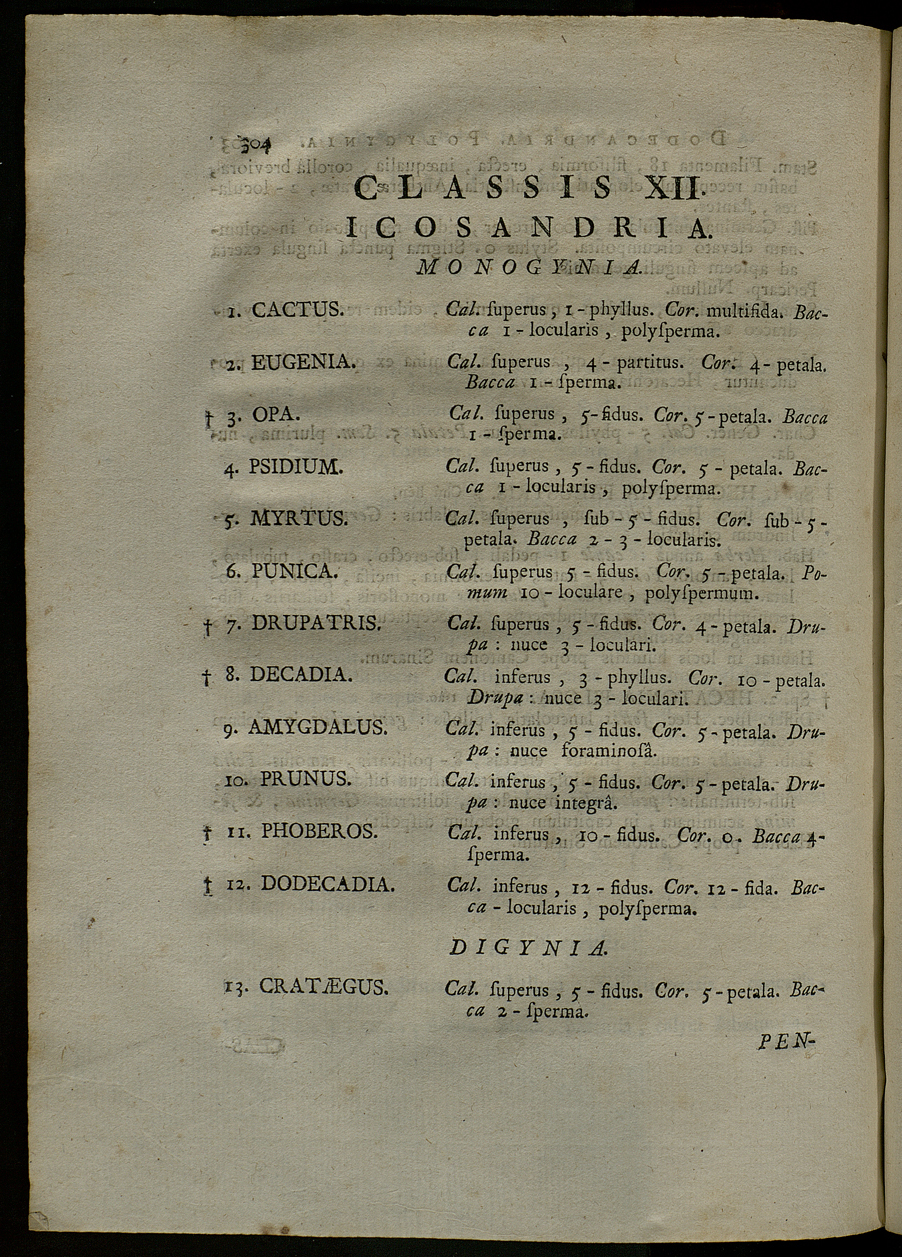 304
CLASSIS XII.
ICOSANDRIA.
MONOGYNIA.
1. CACTUS. Cal. ſuperus, 1-phyllus. Cor. multifida. Bac-
ca 1-locularis, polyſperma.
2. EUGENIA. Cal. ſuperus, 4-partitus. Cor. 4-petala.
Bacca 1-ſperma.
† 3. OPA. Cal. ſuperus, 5-fidus. Cor. 5-petala. Bacca
1-ſperma.
4. PSIDIUM. Cal. ſuperus, 5-fidus. Cor. 5-petala. Bac-
ca 1-locularis, polyſperma.
5. MYRTUS. Cal. ſuperus, ſub-5-fidus. Cor. ſub-5-
petala. Bacca 2-3-locularis.
6. PUNICA. Cal. ſuperus 5-fidus. Cor. 5-petala. Po-
mum 10-loculare, polyſpermum.
† 7. DRUPATRIS. Cal. ſuperus, 5-fidus. Cor. 4-petala. Dru-
pa: nuce 3-loculari.
† 8. DECADIA. Cal. inferus, 3-phyllus. Cor. 10-petala.
Drupa: nuce 3-loculari.
9. AMYGDALUS. Cal. inferus, 5-fidus. Cor. 5-petala. Dru-
pa: nuce foraminoſâ.
10. PRUNUS. Cal. inferus, 5-fidus. Cor. 5-petala. Dru-
pa: nuce integrâ.
† 11. PHOBEROS. Cal. inferus, 10-fidus. Cor. 0. Bacca 4-
ſperma.
† 12. DODECADIA. Cal. inferus, 12-fidus. Cor. 12-fida. Bac-
ca-locularis, polyſperma.
DIGYNIA.
13. CRATÆGUS. Cal. ſuperus, 5-fidus. Cor. 5-petala. Bac-
ca 2-ſperma.
PEN-